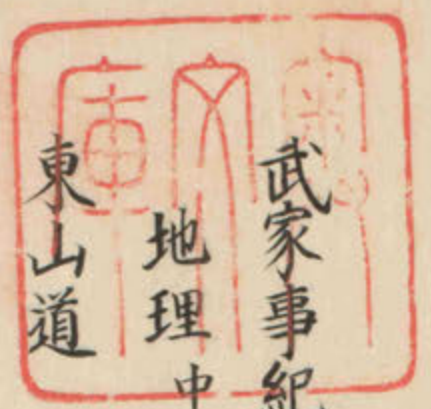 武家事紀
地理中
東山道